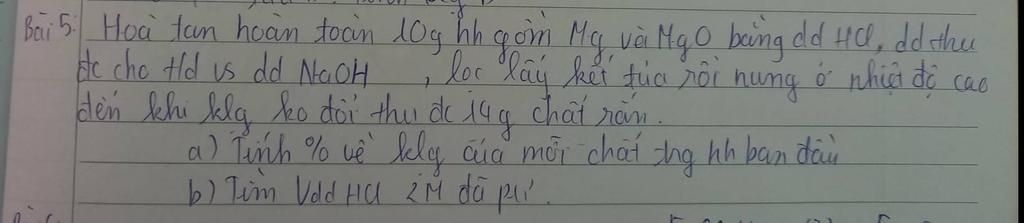 Bài 5: Hoà tan hoàn toàn 10g hh gồm Mg và MgO bằng dd HCl, dd thu
đc cho t/d vs dd NaOH , lọc lấy kết tủa rồi nung ở nhiệt độ cao
đến khi klg ko đổi thu đc 14g chất rắn.
a) Tính % về klg của mỗi chất trg hh ban đầu
b) Tìm Vdd HCl 2M đã pứ.